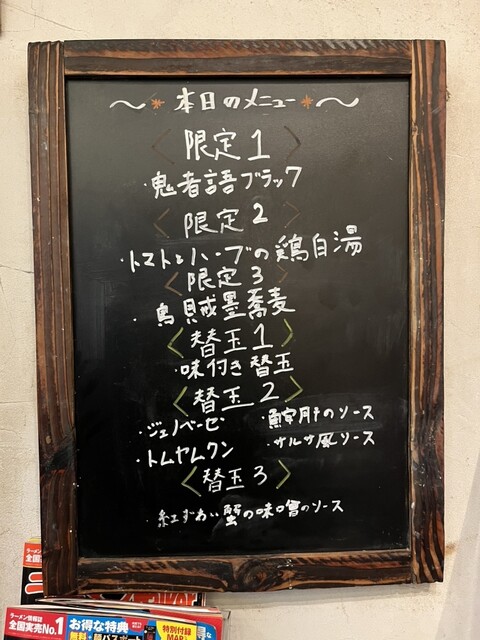 ～*本日のメニュー*～
〈限定1〉
・鬼者語ブラック
〈限定2〉
・トマトとハーブの鶏白湯
〈限定3〉
・烏賊墨蕎麦
〈替玉1〉
・味付き替玉
〈替玉2〉
・ジェノベーゼ ・鮟肝のソース
・トムヤムクン ・サルサ風ソース
〈替玉3〉
・紅ずわい蟹の味噌のソース
ラーメン情報誌
全国実売No.1
お得な特典
特別付録
MAP